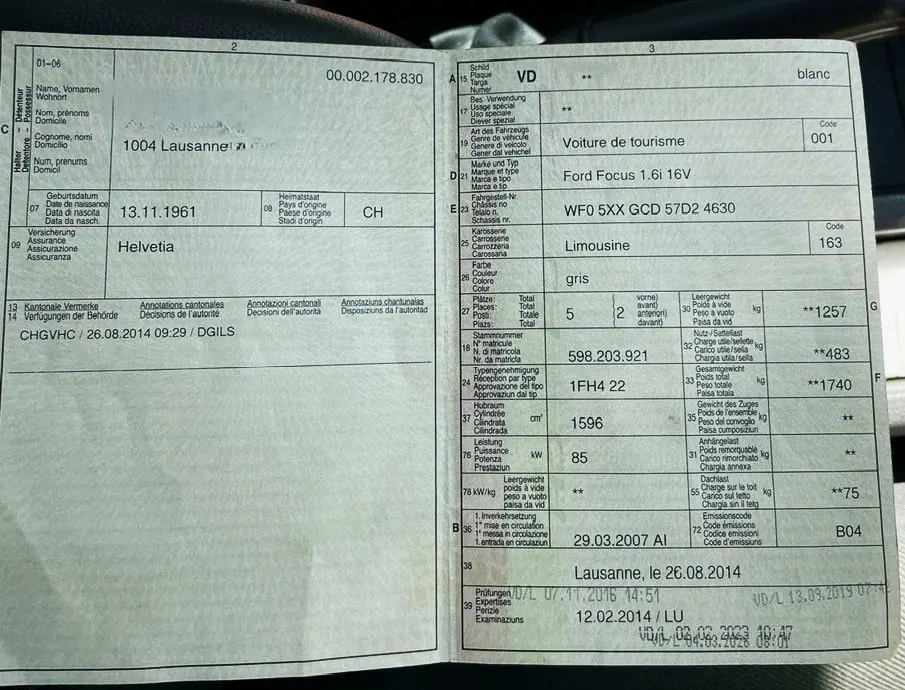 2
01-06
00.002.178.830
C
Halter - Détenteur
Detentore - Possessur
Name, Vornamen
Wohnort
Nom, prénoms
Domicile
Cognome, nomi
Domicilio
Num, prenums
Domicil
1004 Lausanne
07
Geburtsdatum
Date de naissance
Data di nascita
Data da nasch.
13.11.1961
08
Heimatstaat
Pays d'origine
Paese d'origine
Stadi d'origin
CH
09
Versicherung
Assurance
Assicurazione
Assicuranza
Helvetia
13
14
Kantonale Vermerke
Verfügungen der Behörde
Annotations cantonales
Décisions de l'autorité
Annotazioni cantonali
Decisioni dell'autorità
Annotaziuns chantunalas
Disposiziuns da l'autoritad
CHGVHC / 26.08.2014 09:29 / DGILS
3
A
15
Schild
Plaque
Targa
Numer
VD
**
blanc
17
Bes. Verwendung
Usage spécial
Uso speciale
Diever spezial
**
19
Art des Fahrzeugs
Genre de véhicule
Genere di veicolo
Gener dal vehichel
Voiture de tourisme
Code
001
D
21
Marke und Typ
Marque et type
Marca e tipo
Marca e tip
Ford Focus 1.6i 16V
E
23
Fahrgestell-Nr.
Châssis no
Telaio n.
Schassis nr.
WF0 5XX GCD 57D2 4630
25
Karosserie
Carrosserie
Carrozzeria
Carossaria
Limousine
Code
163
26
Farbe
Couleur
Colore
Colur
gris
27
Plätze: Total
Places: Total
Posti: Totale
Plazs: Total
5
vorne)
avant)
anteriori)
davant)
2
30
Leergewicht
Poids à vide
Peso a vuoto
Paisa da vid
kg
**1257
G
18
Stammnummer
N° matricule
N. di matricola
Nr. da matricla
598.203.921
32
Nutz-/Sattellast
Charge utile/sellette
Carico utile/sella
Chargia utila/sella
kg
**483
24
Typengenehmigung
Réception par type
Approvazione del tipo
Approvaziun dal tip
1FH4 22
33
Gesamtgewicht
Poids total
Peso totale
Paisa totala
kg
**1740
F
37
Hubraum
Cylindrée
Cilindrata
Cilindrada
cm³
1596
35
Gewicht des Zuges
Poids de l'ensemble
Peso del convoglio
Paisa cumposiziun
kg
**
76
Leistung
Puissance
Potenza
Prestaziun
kW
85
31
Anhängelast
Poids remorquable
Carico rimorchiato
Chargia annexa
kg
**
78 kW/kg
Leergewicht
poids à vide
peso a vuoto
paisa da vid
**
55
Dachlast
Charge sur le toit
Carico sul tetto
Chargia sin il tetg
kg
**75
B
36
1. Inverkehrsetzung
1re mise en circulation
1a messa in circolazione
1. entrada en circulaziun
29.03.2007 AI
72
Emissionscode
Code émissions
Codice emissioni
Code d'emissiuns
B04
38
Lausanne, le 26.08.2014
39
Prüfungen
Expertises
Perizie
Examinaziuns
VD/L 07.11.2016 14:51
VD/L 13.09.2019
12.02.2014 / LU
VD/L 02.02.2023 10:47
VD/L 04.03.2026 08:01